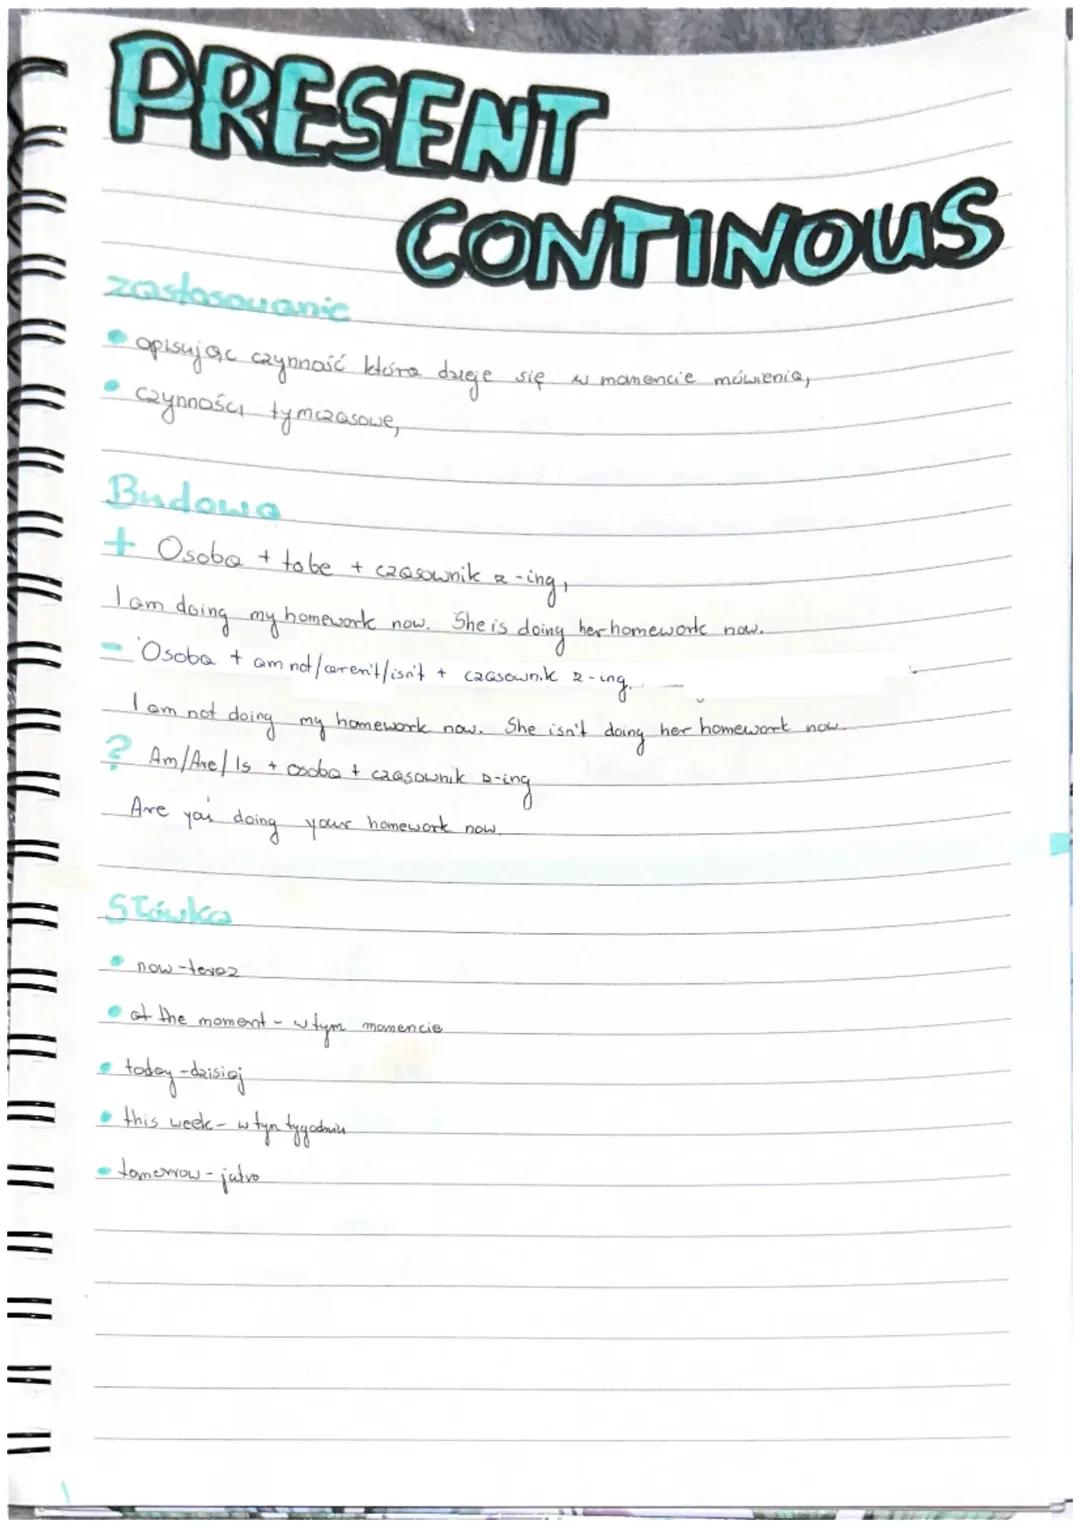 PRESENT
CONTINOUS
zastosowanie
• opisując czynność która dzieje się w momencie mówienia,
• czynności tymczasowe,
Budowa
+ Osoba + tobe + czasownik z -ing,
I am doing my homework now. She is doing her homework now.
- Osoba + am not/aren't/isn't + czasownik z -ing.
I am not doing my homework now. She isn't doing her homework now.
? Am/Are/Is + osoba + czasownik z-ing
Are you doing your homework now.
Słówka
• now - teraz
• at the moment - w tym momencie
• today - dzisiaj
• this week - w tym tygodniu
• tomorrow - jutro